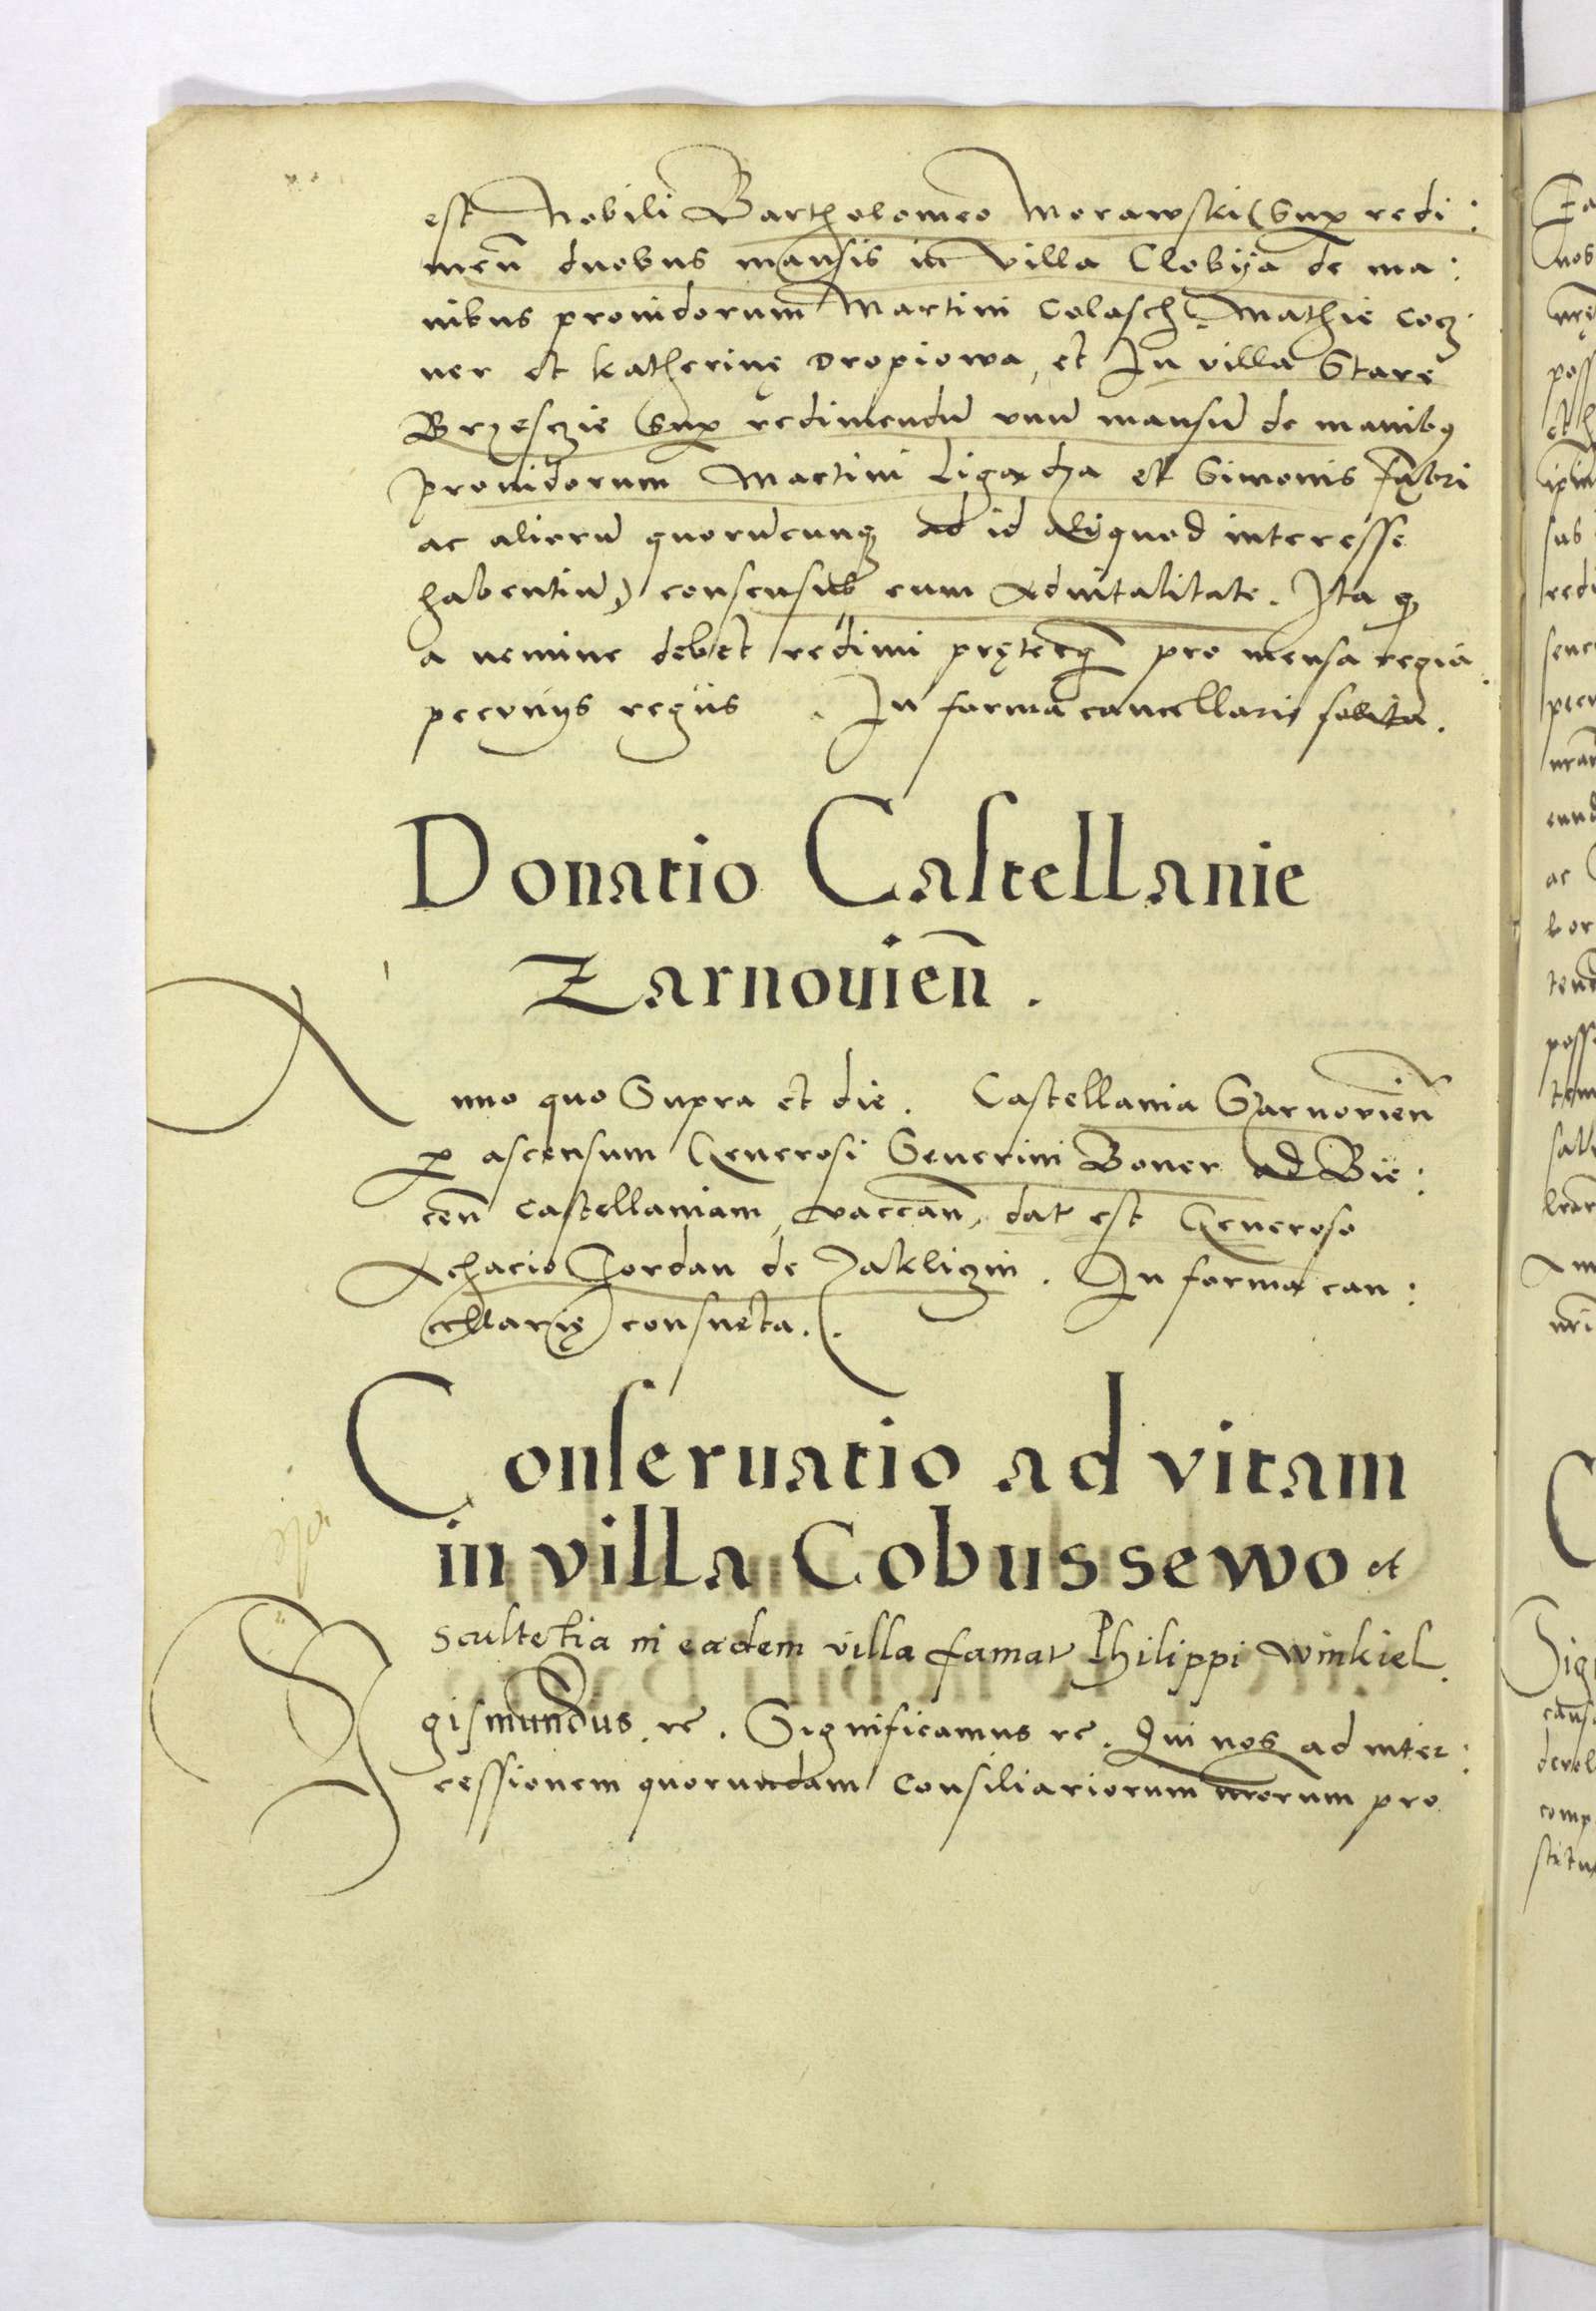 est Nobili Bartholomeo Morawski (Sup redi:
men̄ duobus mansis in villa Clobya de ma:
nibus prouidorum Martini Colasch Mathie Cocz
ner et Katherinę Dropiowa, et In villa Stare
Brzesczie Sup redimendū vnū mansū de manibꝯ
prouidorum Martini Ligaxdza et Simonis Fabri
ac aliorū quorūcunqꝫ ad id aliquod interesse
habentiū) consensus cum aduitalitate. Ita ꝙ
a nemine debet redimi pręterqꝫ pro mensa regia
pecunijs regijs . In forma cancellarie solita.
Donatio Castellanie
Zarnouien̄.
Anno quo Supra et die. Castellania Szarnouien̄
ꝑ ascensum Generosi Seuerini Boner ad Bie:
cen̄ castellaniam, vaccan̄, dat est Generoso
Achacio Jordan de Zakliczin. In forma can:
cellarię consueta..
Conseruatio ad vitam
in villa Cobussewo et
scultetia in eadem villa famat Philippi Winkiel.
Sigismundus rc. Significamus rc. Qui nos ad inter:
cessionem quorundam Consiliariorum nrorum pro